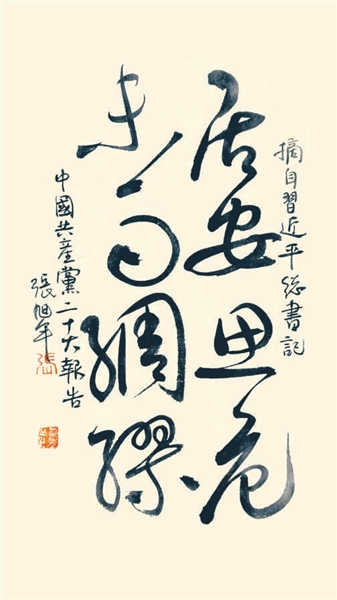 摘自習近平總書記
居安思危
未雨綢繆
中國共産黨二十大報告
張旭年